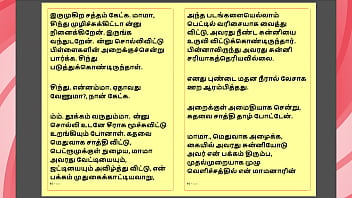 இருமுகிற சத்தம் கேட்க. மாமா,
சிந்து முழிச்சுக்கிட்டா ன்னு
நினைக்கிறேன். இருங்க
வந்துடறேன். ன்னு சொல்லிவிட்டு
பிள்ளைகளின் அறைக்குச்சென்று
பார்க்க. சிந்து
படுத்துக்கொண்டிருந்தாள்.
சிந்து, என்னம்மா. ஏதாவது
வேணுமா?, நான் கேட்க.
ம்ம். தூக்கம் வருதும்மா. ன்னு
சொல்லி உடனே சீராக மூச்சுவிட்டு
உறங்கியும் போனாள். கதவை
மெதுவாக சாத்தி விட்டு,
பெட்ரூமுக்குள் நுழைய, மாமா
அவரது வேட்டியையும்,
ஜட்டியையும் அவிழ்த்து விட்டு, என்
பக்கம் முதுகைக்காட்டியவாறு,
அந்த படங்களையெல்லாம்
பெட்டில் வரிசையாக வைத்து
விட்டு, அவரது நீண்ட சுன்னியை
உருவி விட்டுக்கொண்டிருந்தார்.
பின்னாலிருந்து அவரது சுன்னி
சரியாகத்தெரியவில்லை.
எனது புண்டை மதன நீரால் லேசாக
ஊற ஆரம்பித்தது.
அறைக்குள் அமைதியாக சென்று,
கதவை சாத்தி தாழ் போட்டேன்.
மாமா., மெதுவாக அழைக்க,
கையில் அவரது சுன்னியோடு
அவர் என் பக்கம் திரும்ப,
முதல்முறையாக முழு
வெளிச்சத்தில் என் மாமனாரின்